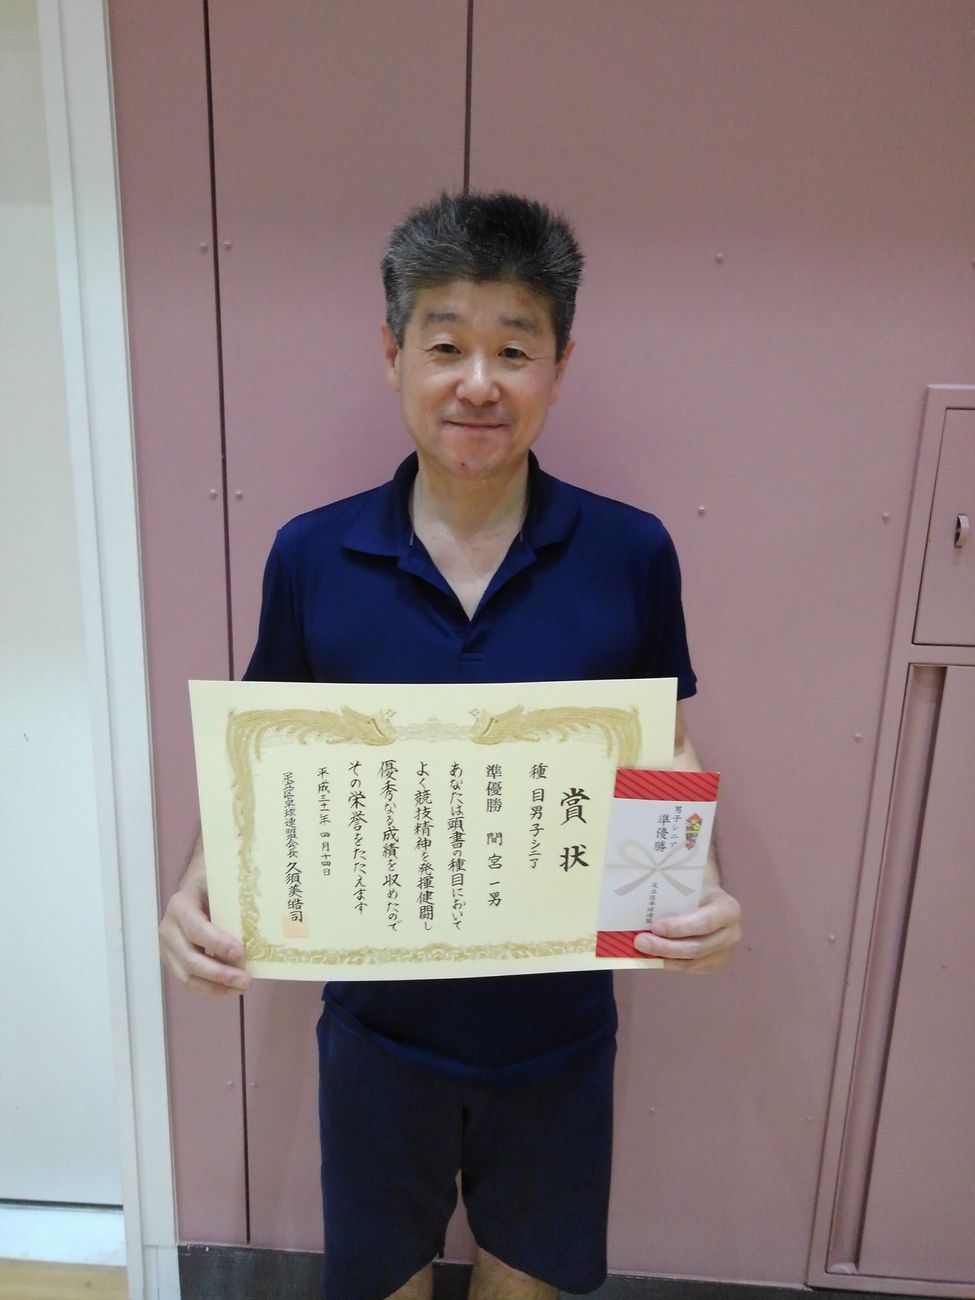 賞状
種目男子シニア
準優勝 間宮一男
あなたは頭書の種目において
よく競技精神を発揮健闘し
優秀なる成績を収めたので
その栄誉をたたえます
平成三十一年四月十四日
足立区卓球連盟会長 久須美皓司
男子シニア
準優勝
足立区卓球連盟